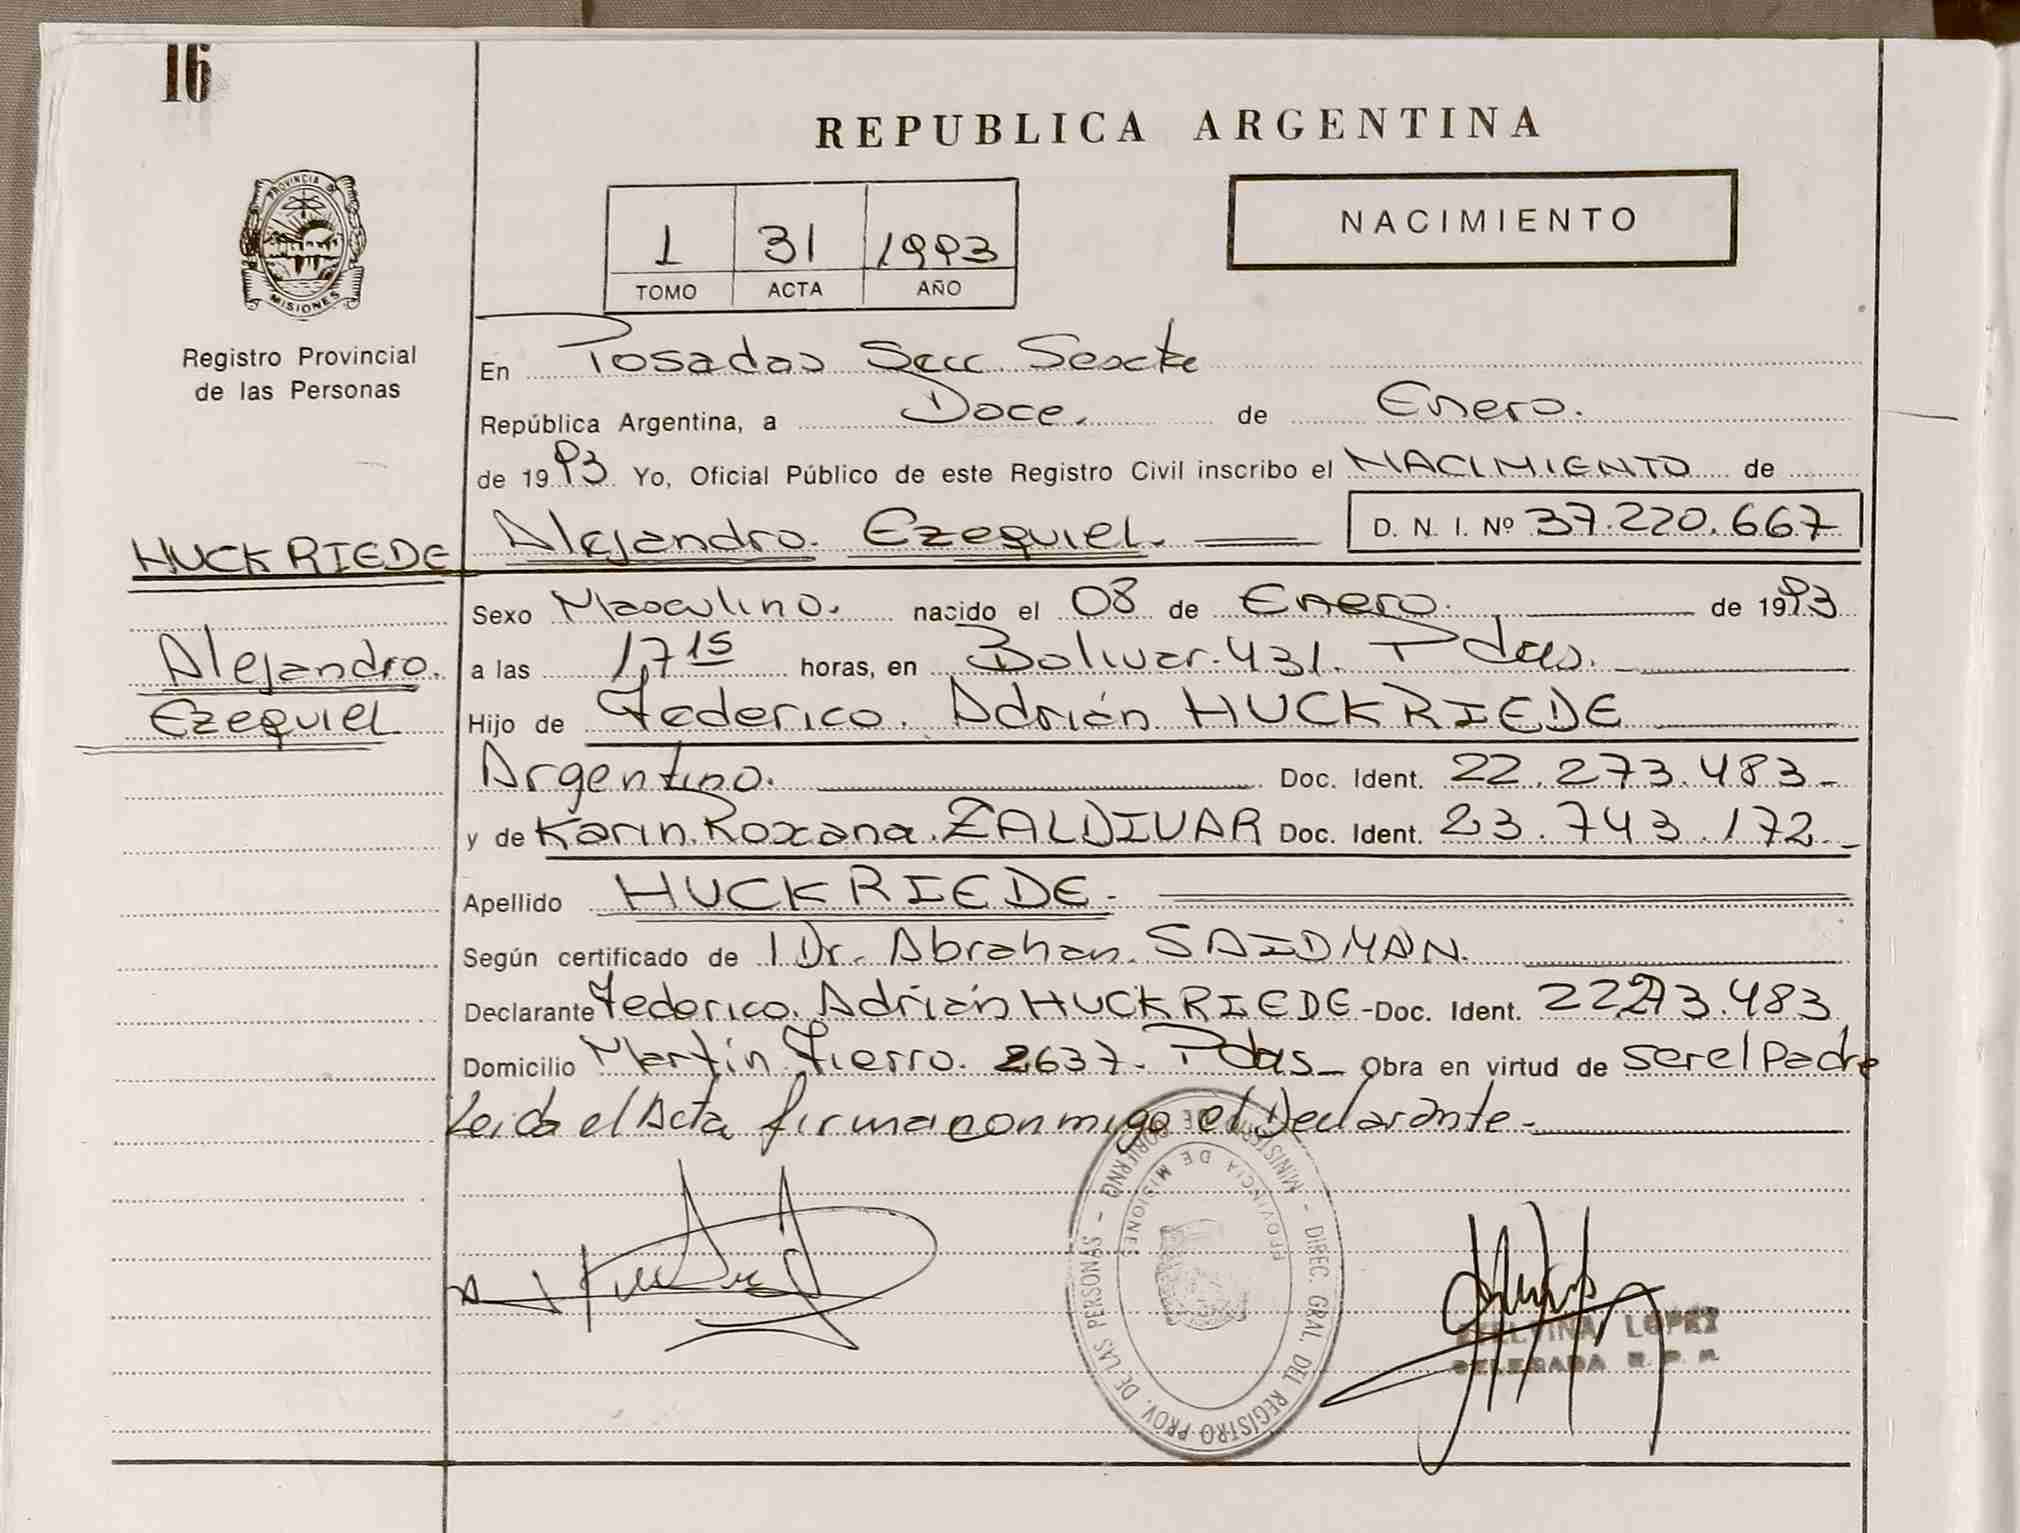 16
REPUBLICA ARGENTINA
PROVINCIA DE
MISIONES
Registro Provincial
de las Personas
1 31 1993
TOMO ACTA AÑO
NACIMIENTO
En Posadas Secc. Sexta
República Argentina, a Doce. de Enero.
de 1993 Yo, Oficial Público de este Registro Civil inscribo el NACIMIENTO de
HUCKRIEDE Alejandro. Ezequiel. D. N. I. Nº 37.220.667
Sexo Masculino. nacido el 08 de Enero. de 1993
Alejandro. a las 17 15 horas, en Bolivar. 431. Pdas.
Ezequiel Hijo de Federico. Adrián HUCKRIEDE
Argentino. Doc. Ident. 22.273.483-
y de Karin. Roxana. ZALDIVAR Doc. Ident. 23.743.172-
Apellido HUCKRIEDE.
Según certificado de 1 Dr. Abrahan. SAIDMAN.
Declarante Federico. Adrián HUCKRIEDE - Doc. Ident. 22273.483
Domicilio Martín Fierro. 2637. Pdas_ Obra en virtud de ser el Padre
Leida el Acta firma conmigo el Declarante-
MINISTERIO DE GOBIERNO - DIREC. GRAL. DEL REGISTRO PROV. DE LAS PERSONAS -
PROVINCIA DE MISIONES
LOPEZ
DELEGADA R. P. P.